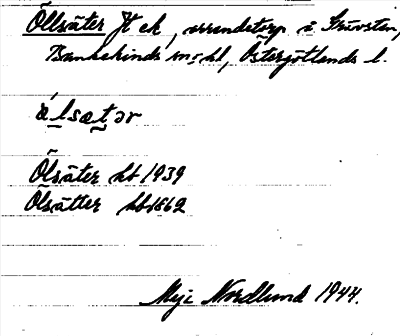 Öllsäter Jt ek, arrendetorp i Skärsten,
Bankekinds sn o hd, Östergötlands l.
ø̀lsætər
Ölsäter kb 1939
Ölsätter hb 1662
Meje Nordlund 1944.